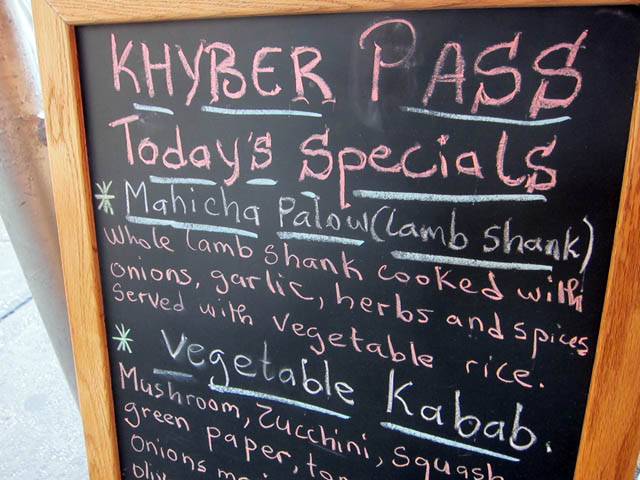 KHYBER PASS
Today's Specials
* Mahicha Palow (lamb shank)
Whole lamb shank cooked with
onions, garlic, herbs and spices
Served with vegetable rice.
* Vegetable Kabab.
Mushroom, Zucchini, squash
green paper,
onions